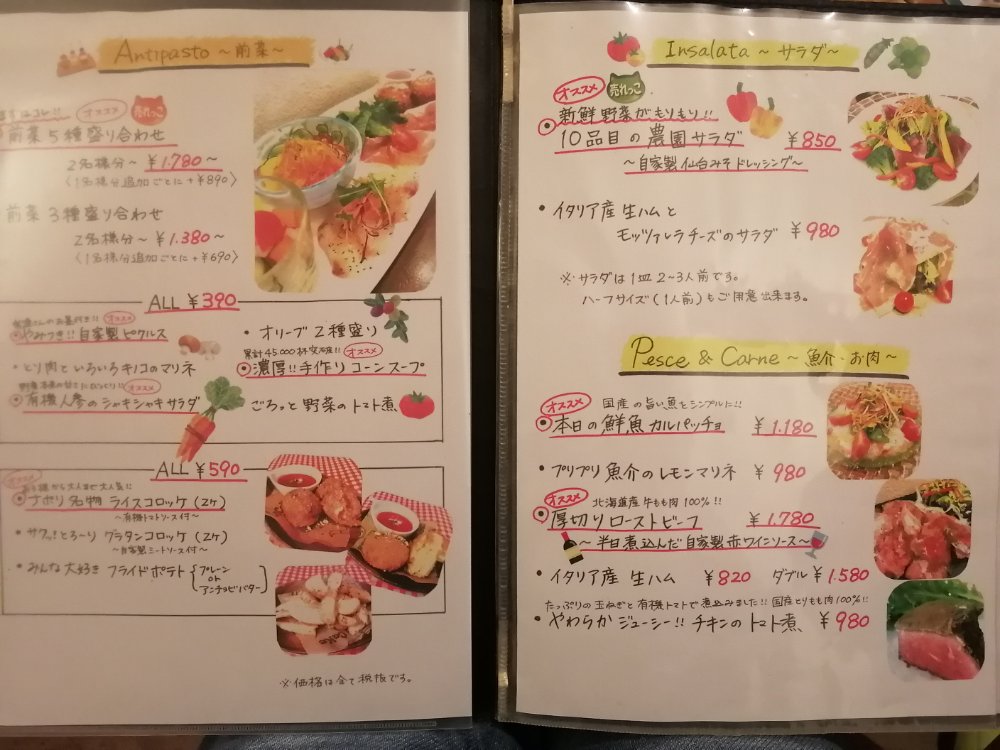 Antipasto ~前菜~
まずはコレ!! オススメ 売れっこ
前菜5種盛り合わせ
2名様分~ ¥1.780~
〈1名様分追加ごとに +¥890〉
前菜3種盛り合わせ
2名様分~ ¥1.380~
〈1名様分追加ごとに +¥690〉
ALL ¥390
オススメ
やみつき!! 自家製ピクルス
・とり肉といろいろキノコのマリネ
オススメ
有機人参のシャキシャキサラダ
・オリーブ2種盛り
累計45.000杯突破!! オススメ
濃厚!! 手作りコーンスープ
ごろっと野菜のトマト煮
ALL ¥590
オススメ お子様から大人まで大人気!!
ナポリ名物 ライスコロッケ(2ケ)
~有機トマトソース付~
・サクッ!とろ~り グラタンコロッケ(2ケ)
~自家製ミートソース付~
・みんな大好き フライドポテト{プレーン
or
アンチョビバター}
※価格は全て税抜です。
Insalata ~サラダ~
オススメ 売れっこ
新鮮野菜がもりもり!!
10品目の農園サラダ ¥850
~自家製仙台みそドレッシング~
・イタリア産 生ハムと
モッツァレラチーズのサラダ ¥980
※サラダは1皿2~3人前です。
ハーフサイズ(1人前)もご用意出来ます。
Pesce & Carne ~魚介・お肉~
オススメ 国産の旨い魚をシンプルに!!
本日の鮮魚カルパッチョ ¥1.180
・プリプリ魚介のレモンマリネ ¥980
オススメ 北海道産牛もも肉100%!!
厚切りローストビーフ ¥1.780
~半日煮込んだ自家製赤ワインソース~
・イタリア産 生ハム ¥820 ダブル ¥1.580
たっぷりの玉ねぎと有機トマトで煮込みました!! 国産とりもも肉100%!!
・やわらかジューシー!! チキンのトマト煮 ¥980